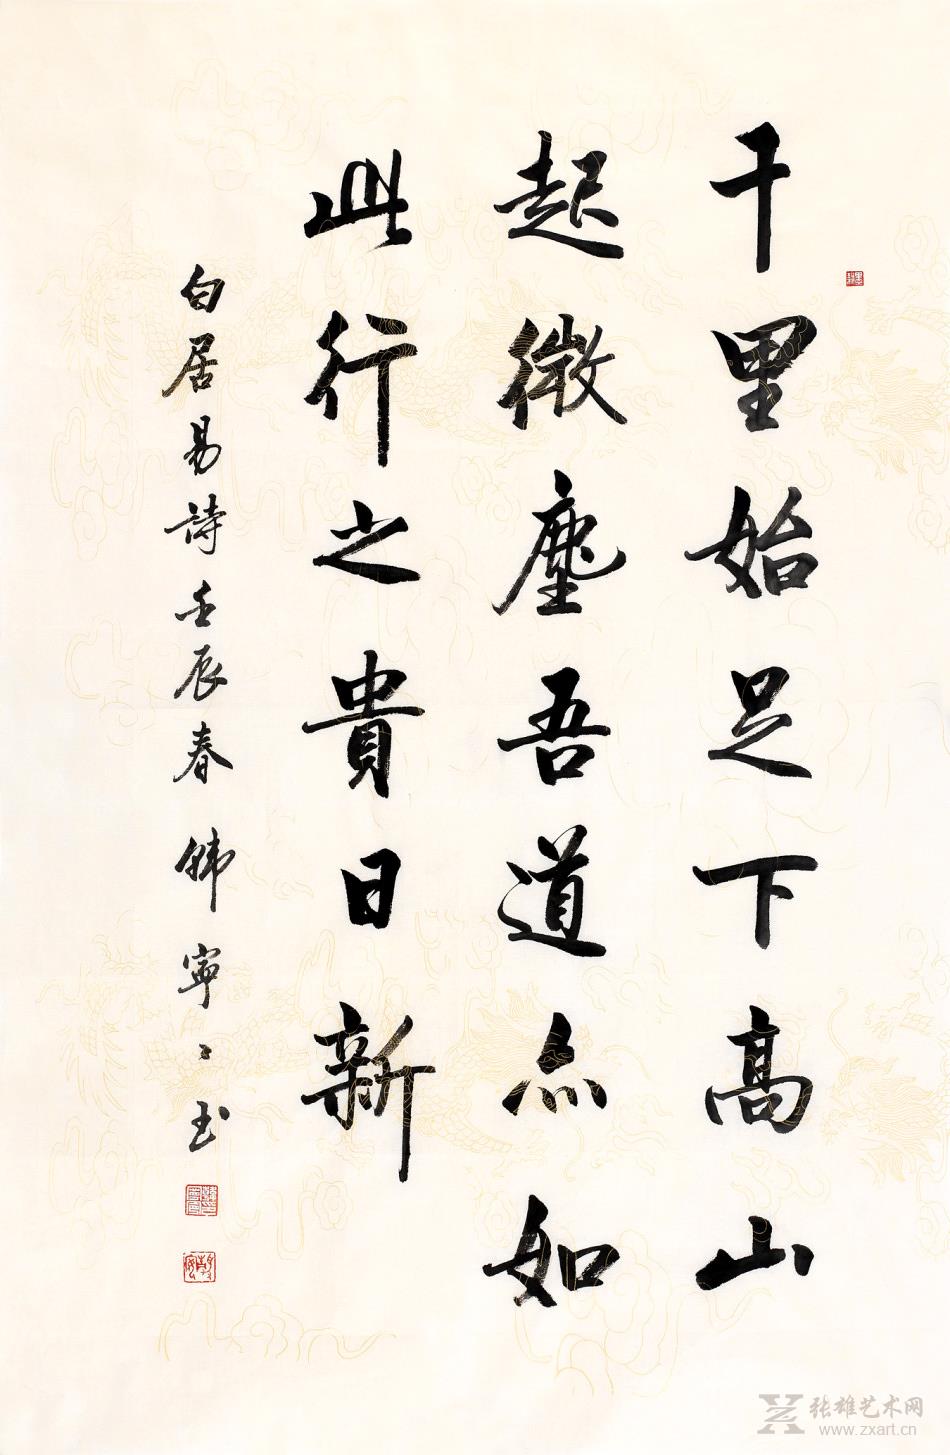 千里始足下高山
起微塵吾道亦如
此行之貴日新
白居易詩壬辰春韓寧寧书
张雄艺术网
www.zxart.cn